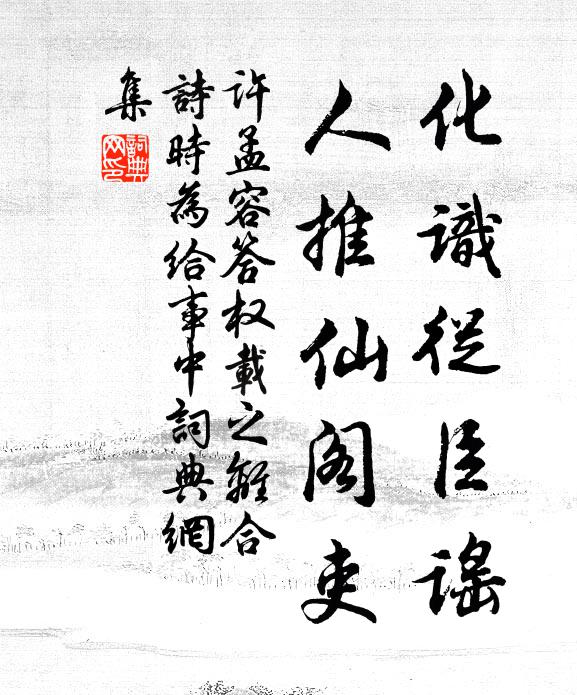 化識從臣謠
人推仙閣吏
许孟容答权載之離合
詩時為給事中詞典網
集
詞典網印